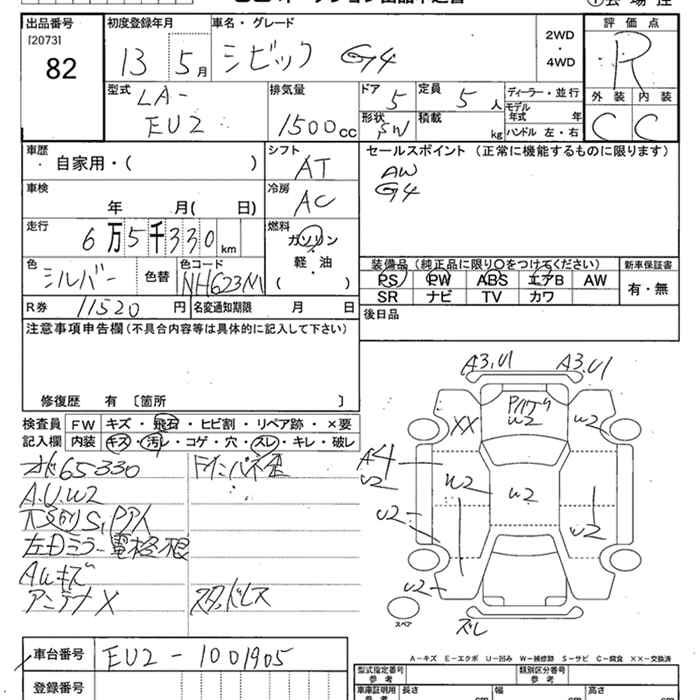 出品番号
[2073]
82
初度登録年月
13 5月
車名・グレード
シビック G4
2WD
・
4WD
評価点
R
外装 内装
C C
型式
LA-
EU2
排気量
1500cc
ドア 5
定員 5人
形状 SW
積載 kg
ディーラー・並行
モデル年式 年
ハンドル 左・右
車歴
自家用・( )
シフト
AT
セールスポイント (正常に機能するものに限ります)
AW
G4
車検
年 月( 日)
冷房
AC
走行
6万5千330km
燃料
ガソリン
・
軽・油
( )
色
シルバー
色替
色コード
NH623M
装備品(純正品に限り○をつけてください)
PS PW ABS エアB AW
SR ナビ TV カワ
新車保証書
有・無
R券 11520円
名変通知期限 月 日
後日品
注意事項申告欄(不具合内容等は具体的に記入して下さい)
修復歴 有〔箇所 〕
検査員
記入欄
FW キズ・飛石・ヒビ割・リペア跡・×要
内装 キズ・汚レ・コゲ・穴・スレ・キレ・破レ
65330
A.U.W2
左Dミラー電格不良
AWキズ
アンテナX
スタッドレス
A3.U1 A3.U1
XX
W2
W2
A4
U2
W2
W2
U2
U2
U2
ズレ
スペア
A-キズ E-エクボ U-凹み W-補修跡 S-サビ C-腐食 XX-交換済
車台番号
EU2-1001905
型式指定番号
参考
類別区分番号
参考
登録番号
車庫証明用
参考
長さ cm
幅 cm
高さ cm